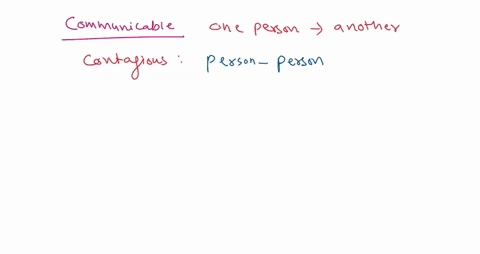 Communicable one person → another
Contagious : person - person